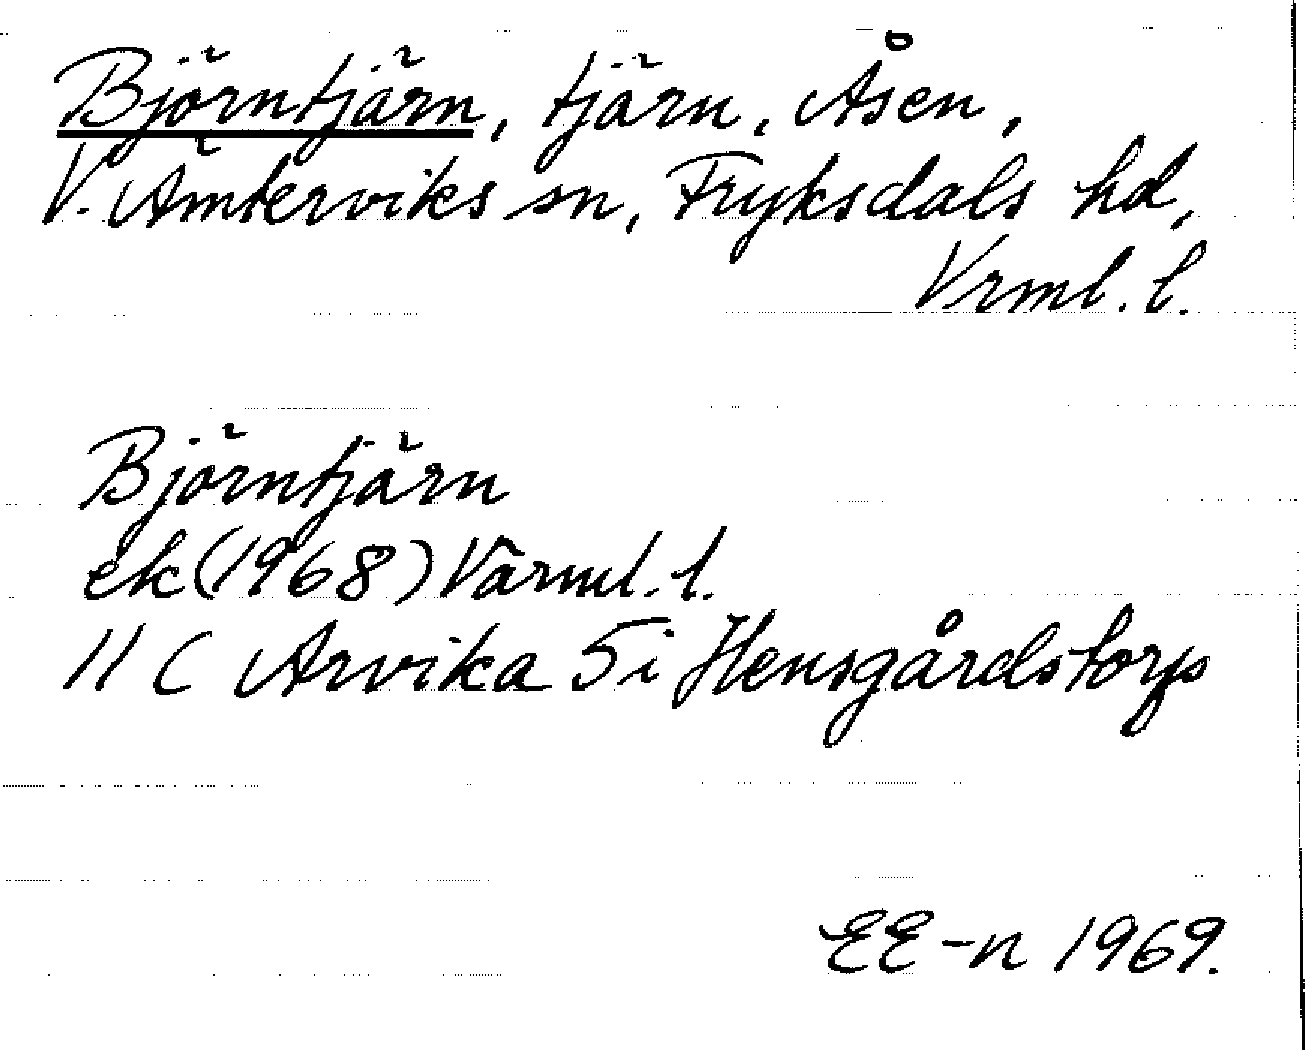 Björntjärn, tjärn, Åsen,
V. Ämterviks sn, Fryksdals hd,
Vrml. l.
Björntjärn
ek (1968) Värml. l.
11 C Arvika 5 i Hensgårdstorp
EE-n 1969.